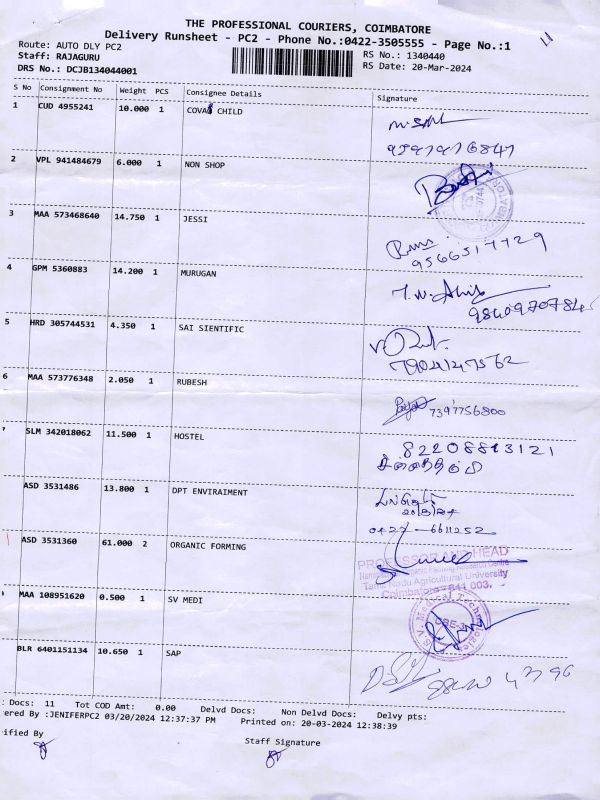 THE PROFESSIONAL COURIERS, COIMBATORE
Delivery Runsheet - PC2 - Phone No.:0422-3505555 - Page No.:1
11
Route: AUTO DLY PC2
RS No.: 1340440
Staff: RAJAGURU
RS Date: 20-Mar-2024
DRS No.: DCJB134044001
S No Consignment No Weight PCS Consignee Details Signature
1 CUD 4955241 10.000 1 COVAI CHILD
2 VPL 941484679 6.000 1 NON SHOP
3 MAA 573468640 14.750 1 JESSI
9566517729
4 GPM 5360883 14.200 1 MURUGAN
9840970784
5 HRD 305744531 4.350 1 SAI SIENTIFIC
7904147562
6 MAA 573776348 2.050 1 RUBESH
7397756800
7 SLM 342018062 11.500 1 HOSTEL
ASD 3531486 13.800 1 DPT ENVIRAIMENT
20/3/24
0422-6611252
ASD 3531360 61.000 2 ORGANIC FORMING
PROFESSOR AND HEAD
Tamil Nadu Agricultural University
Coimbatore - 641 003.
MAA 108951620 0.500 1 SV MEDI
S.V. Medical Technologies
CBE-
BLR 6401151134 10.650 1 SAP
: Docs: 11 Tot COD Amt: 0.00 Delvd Docs: Non Delvd Docs: Delvy pts:
ered By :JENIFERPC2 03/20/2024 12:37:37 PM Printed on: 20-03-2024 12:38:39
ified By
Staff Signature